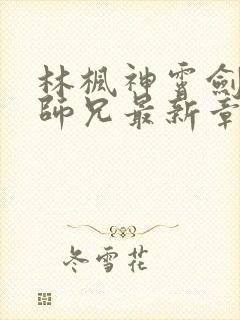 林楓神霄劍
師兄最新章
冬雪花